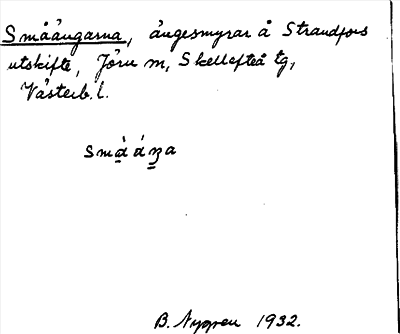 Småängarna, ängesmyrar å Strandfors
utskifte, Jörn sn, Skellefteå tg,
Västerb. l.
småaŋa
B. Nygren 1932.